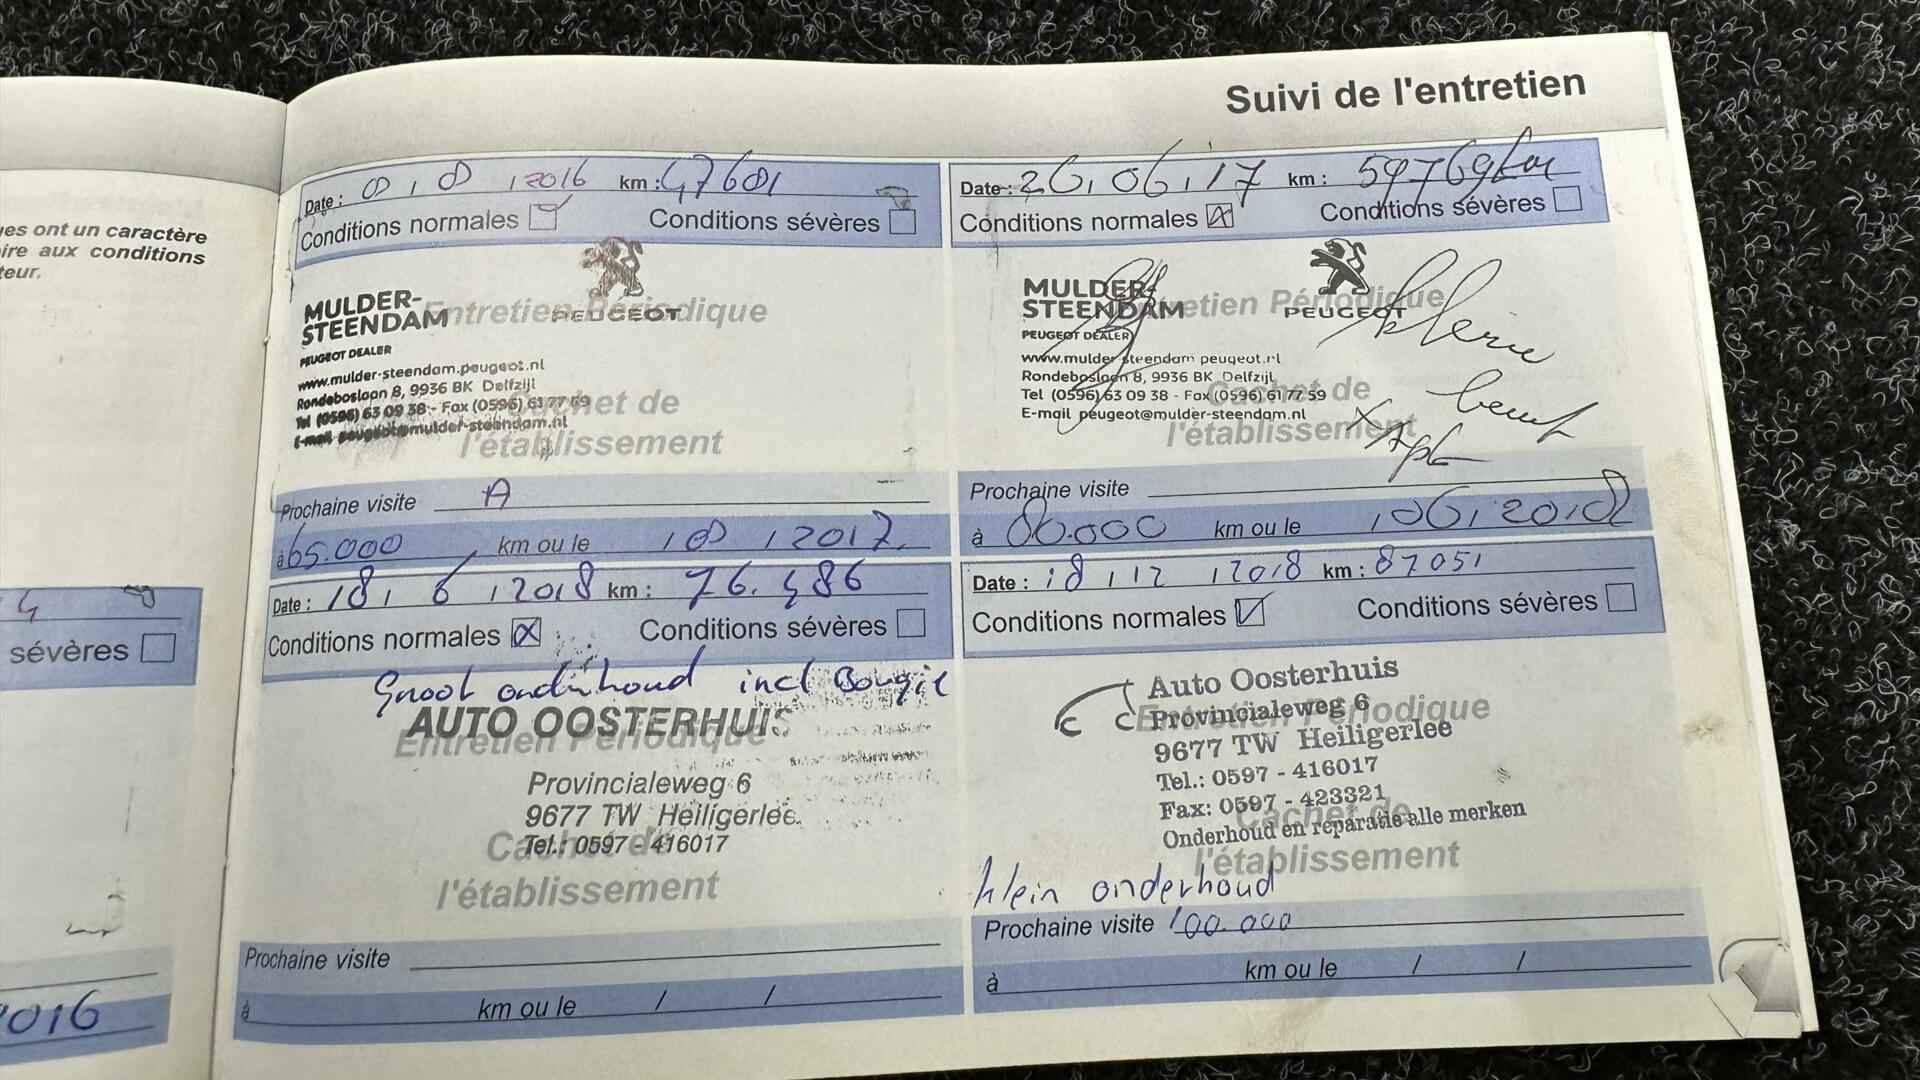 Suivi de l'entretien
ues ont un caractère
ire aux conditions
teur.
4
sévères
2016
Date : 8 / 8 / 2016 km : 47681
Conditions normales Conditions sévères
MULDER-
STEENDAM
PEUGEOT
PEUGEOT DEALER
www.mulder-steendam.peugeot.nl
Rondeboslaan 8, 9936 BK Delfzijl
Tel (0596) 63 09 38 - Fax (0596) 61 77 59
E-mail peugeot@mulder-steendam.nl
Entretien Périodique
Cachet de
l'établissement
Prochaine visite A
à 65.000 km ou le / 8 / 2017
Date : 26 / 06 / 17 km : 59769km
Conditions normales Conditions sévères
MULDER-
STEENDAM
PEUGEOT
PEUGEOT DEALER
www.mulder-steendam.peugeot.nl
Rondeboslaan 8, 9936 BK Delfzijl
Tel (0596) 63 09 38 - Fax (0596) 61 77 59
E-mail peugeot@mulder-steendam.nl
Entretien Périodique
Cachet de
l'établissement
kleine
beurt
+ Apk
Prochaine visite
à 80.000 km ou le / 06 / 2018
Date : 18 / 6 / 2018 km : 76.486
Conditions normales Conditions sévères
Groot onderhoud incl Bougie
AUTO OOSTERHUIS
Provincialeweg 6
9677 TW Heiligerlee
Tel.: 0597 - 416017
Entretien Périodique
Cachet de
l'établissement
Prochaine visite
à km ou le / /
Date : 18 / 12 / 2018 km : 87051
Conditions normales Conditions sévères
Auto Oosterhuis
Provincialeweg 6
9677 TW Heiligerlee
Tel.: 0597 - 416017
Fax: 0597 - 423321
Onderhoud en reparatie alle merken
Entretien Périodique
Cachet de
l'établissement
klein onderhoud
Prochaine visite 100.000
à km ou le / /